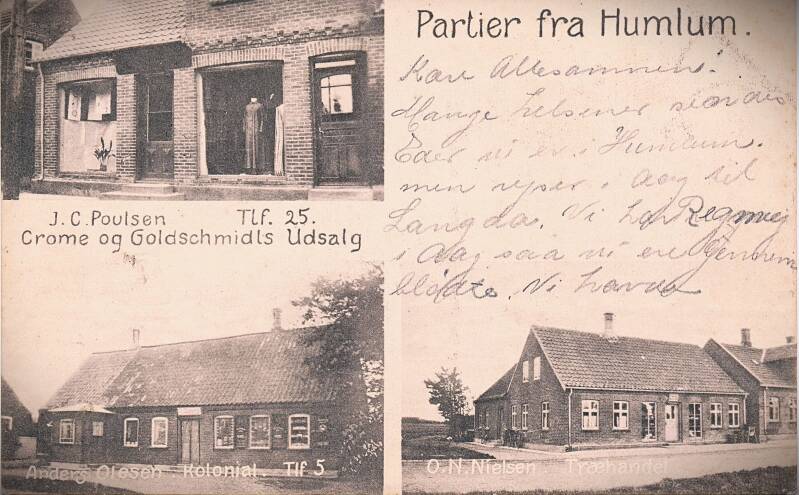 Partier fra Humlum.
Kære Allesammen.
Mange helsener sendes
Eder vi er i Humlum.
men rejser i dag til
Langda. Vi har Regnvejr
i dag saa vi ere Gennem
blødte. Vi havde
J. C. Poulsen Tlf. 25.
Crome og Goldschmidts Udsalg
Anders Olesen. Kolonial. Tlf 5
O. N. Nielsen. Træhandel